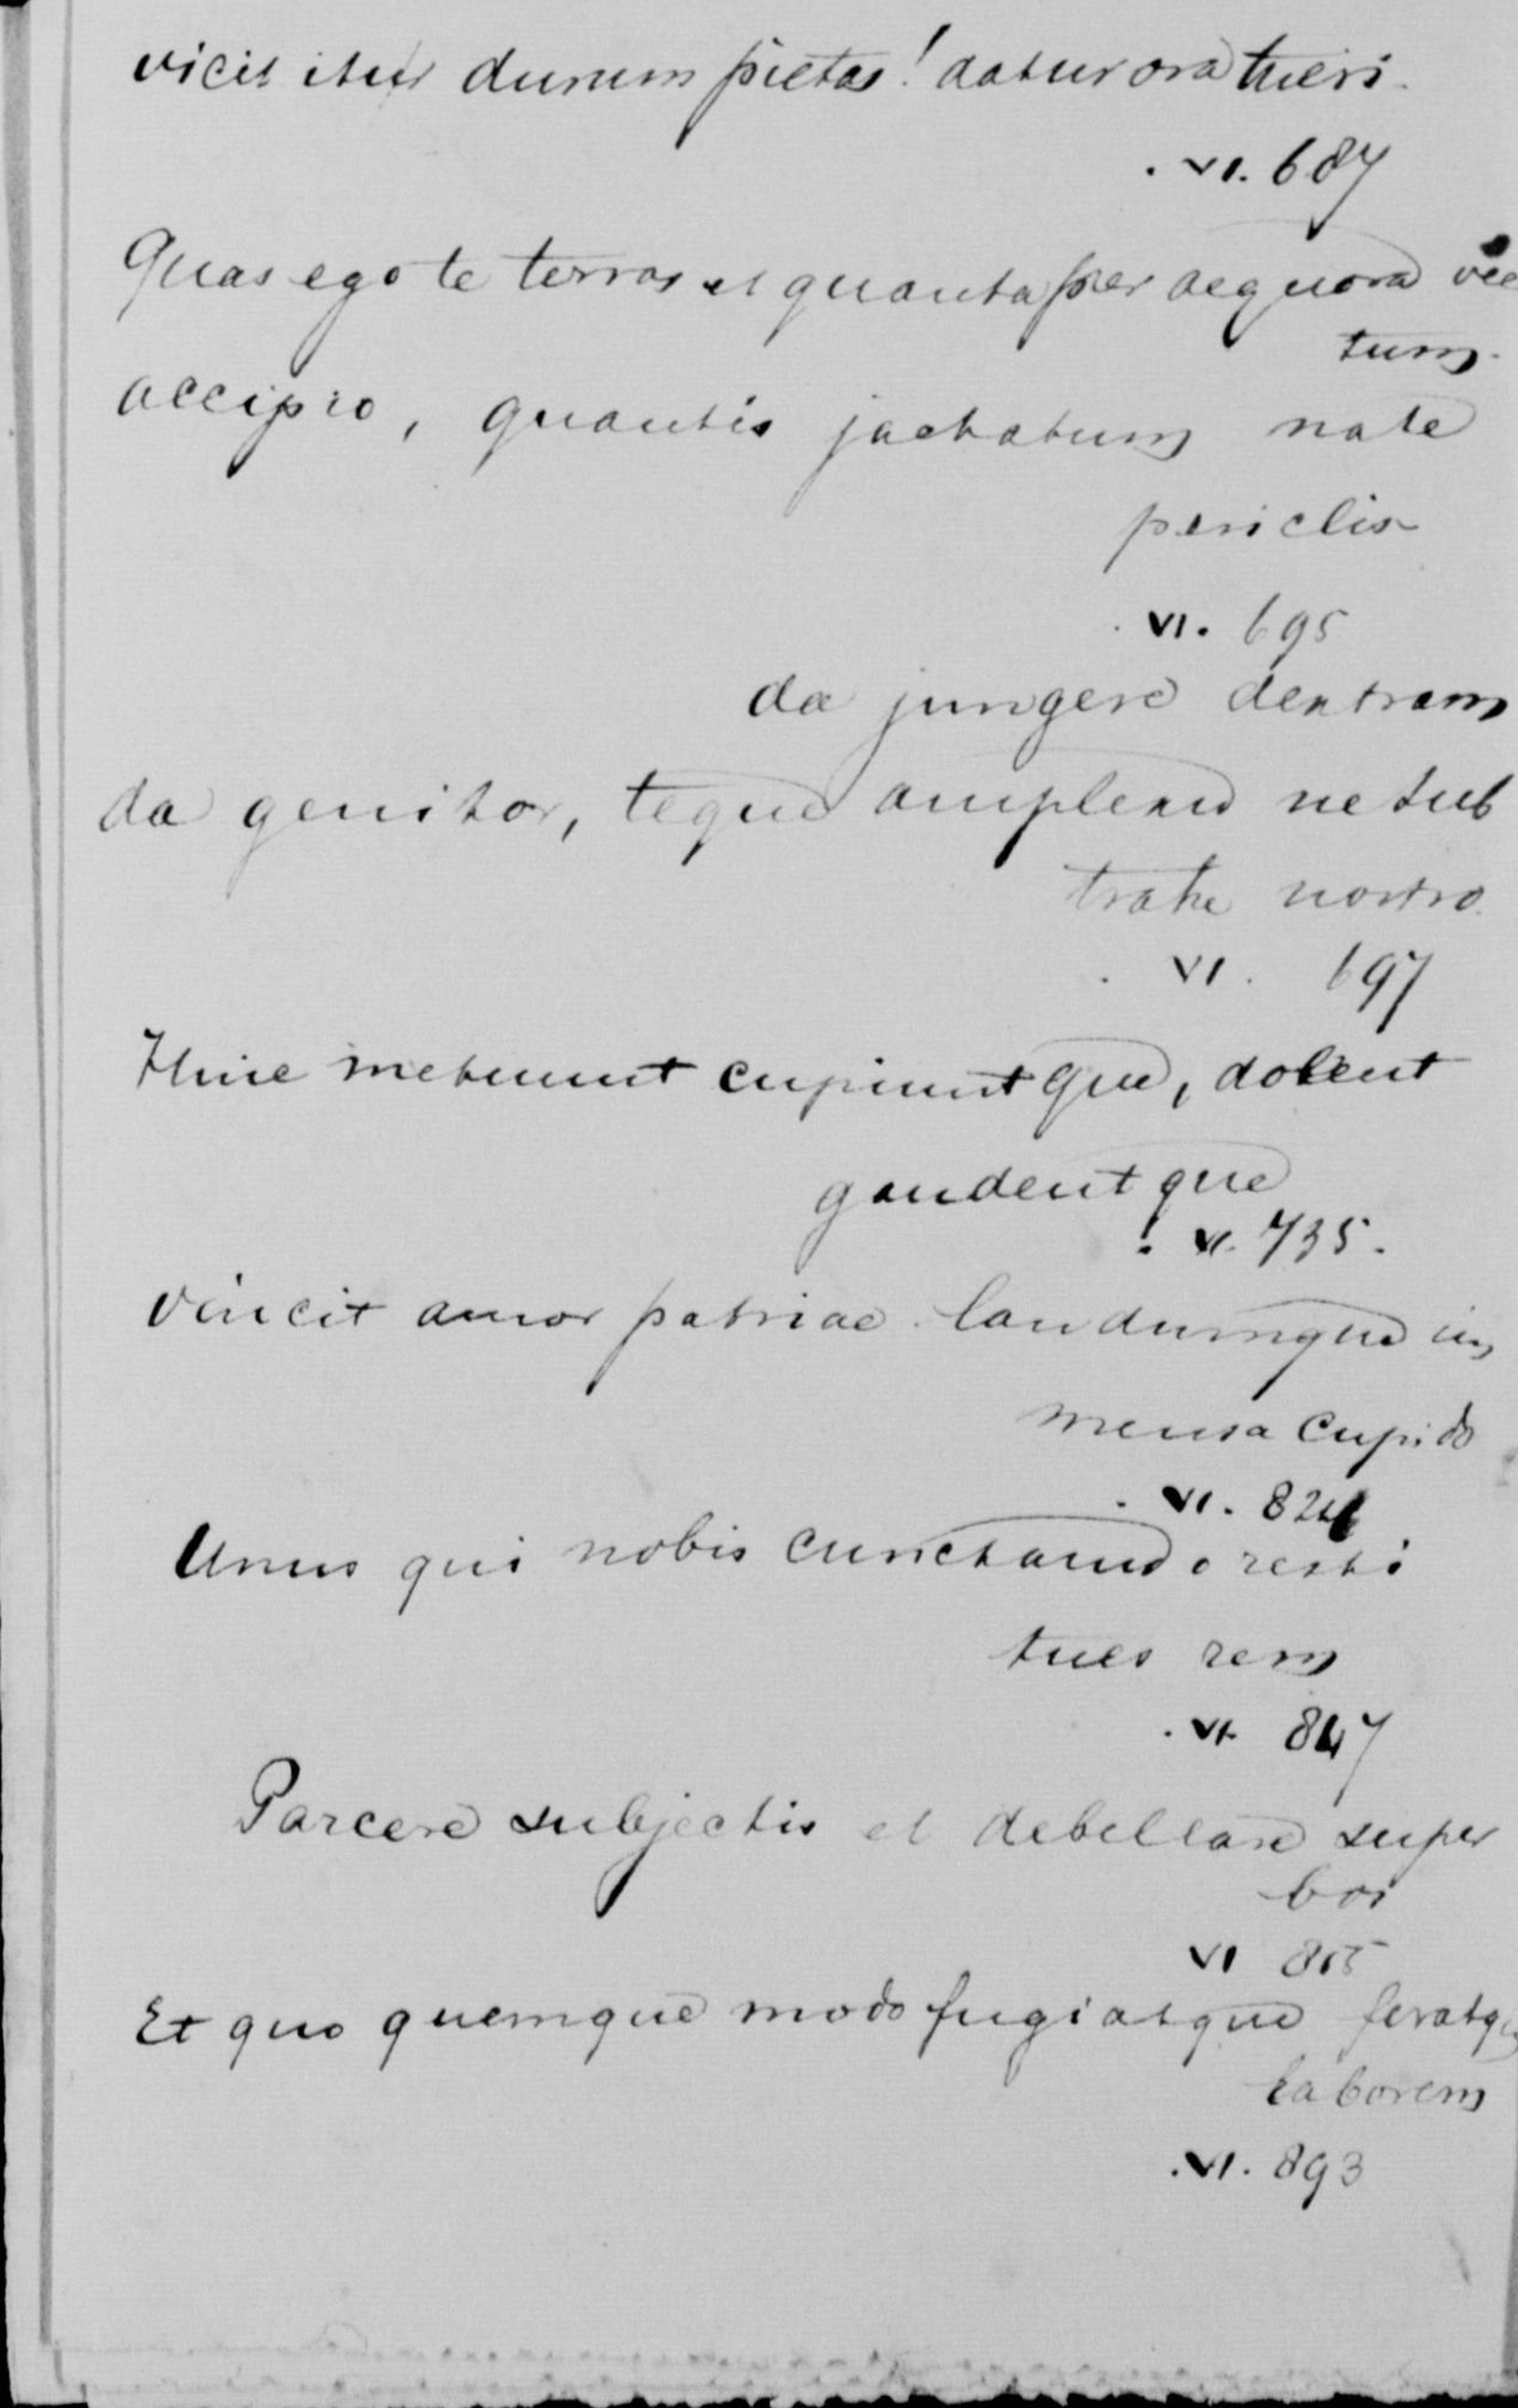 vicit iter durum pietas! datur ora tueri.
. VI. 687
Quas ego te terras et quanta per aequora vec
tum.
accipio, quantis jactatum nate
periclis
. VI. 695
da jungere dextram
da genitor, teque amplexu ne sub
trahe nostro.
. VI. 697
Hinc metuunt cupiuntque, dolent
gaudentque
. VI. 735.
vincit amor patriae laudumque im
mensa cupido
. VI. 824
Unus qui nobis cunctando resti
tues rem
. VI. 847
Parcere subjectis et debellare super
bos
VI 855
Et quo quemque modo fugiatque feratque
laborem
. VI. 893